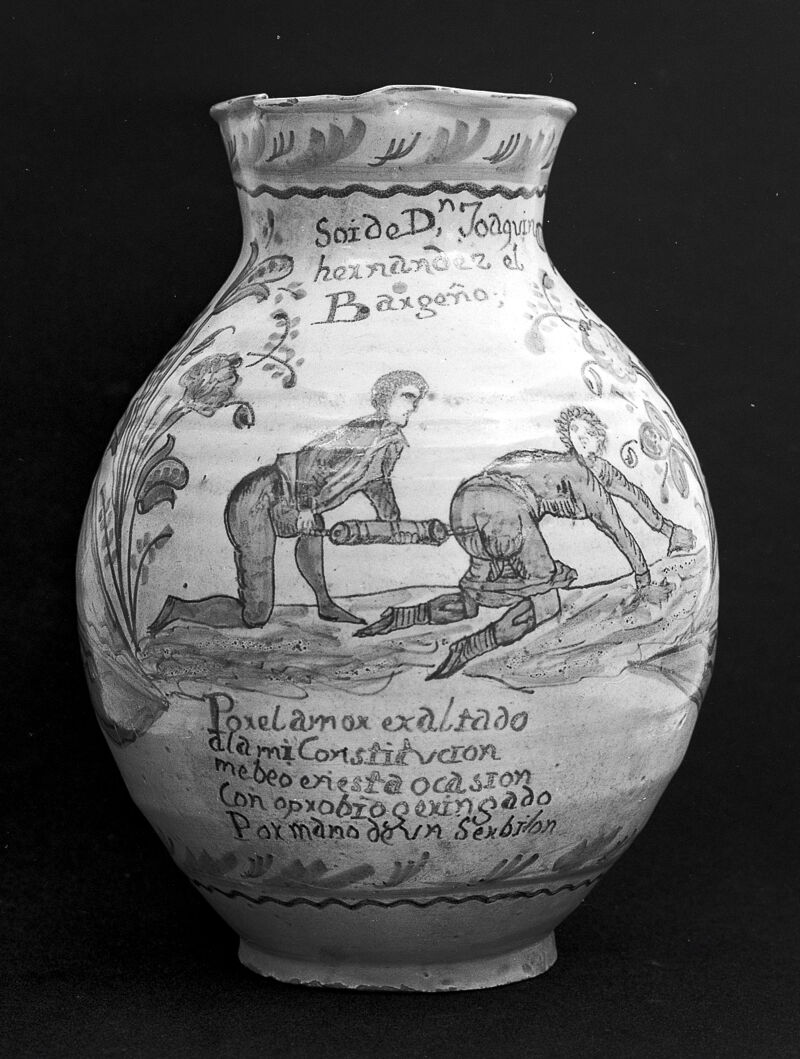 Soi de Dⁿ, Joaquin
hernandez el
Bargeño,
Por el amor exaltado
a la mi Constitucion
me beo en esta ocasion
Con oprobio geringado
Por mano de un Serbilon